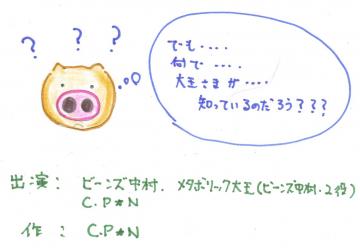 ? ? ?
でも・・・・
何で・・・・
大王さまが・・・・
知っているのだろう???
出演: ビーンズ中村. メタボリック大王(ビーンズ中村・2役)
C.P*N
作: C.P*N